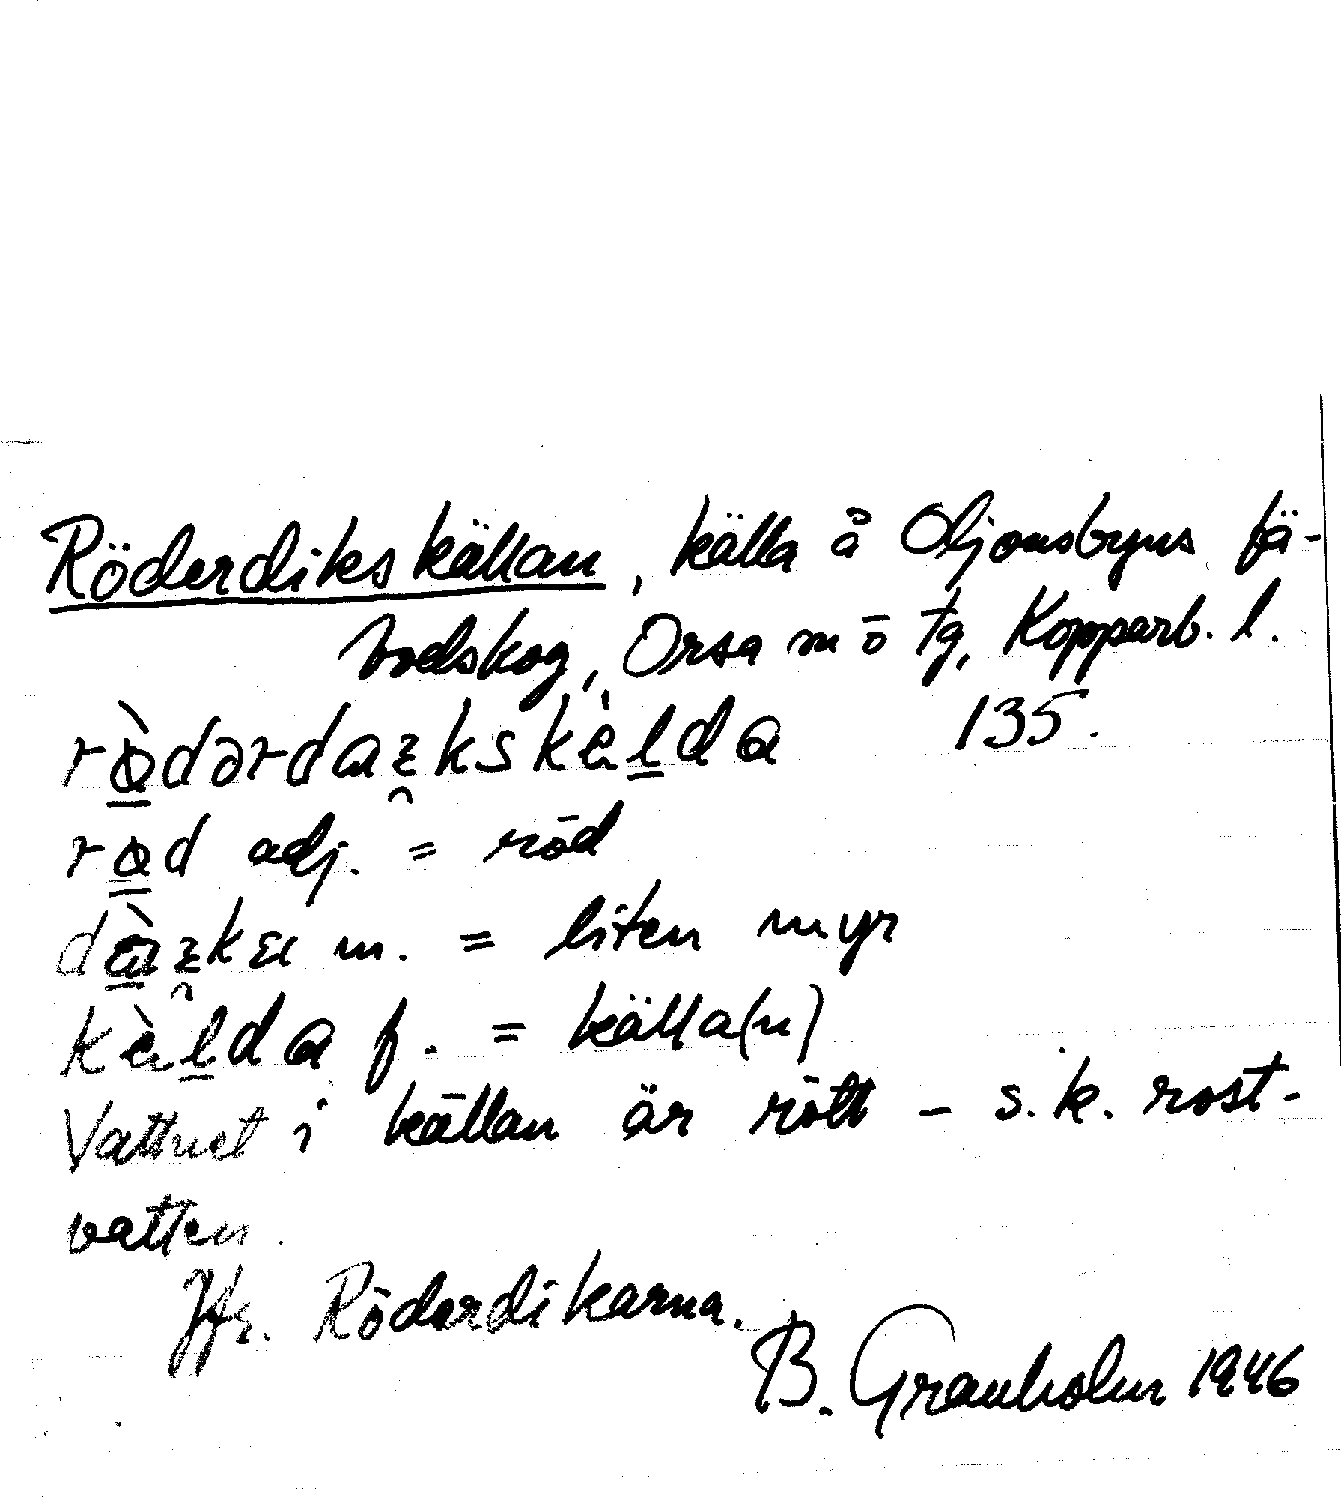 Röderdikskällan, källa å Oljonsbyns fä-
bodskog, Orsa m ō fg, Kopparb. l.
135.
adj. = röd
m. = liten myr
f. = källa(n)
Vattnet i källan är rött – s.k. rost-
vatten.
Jfr. Röderdikarna.
B. Granholm 1946